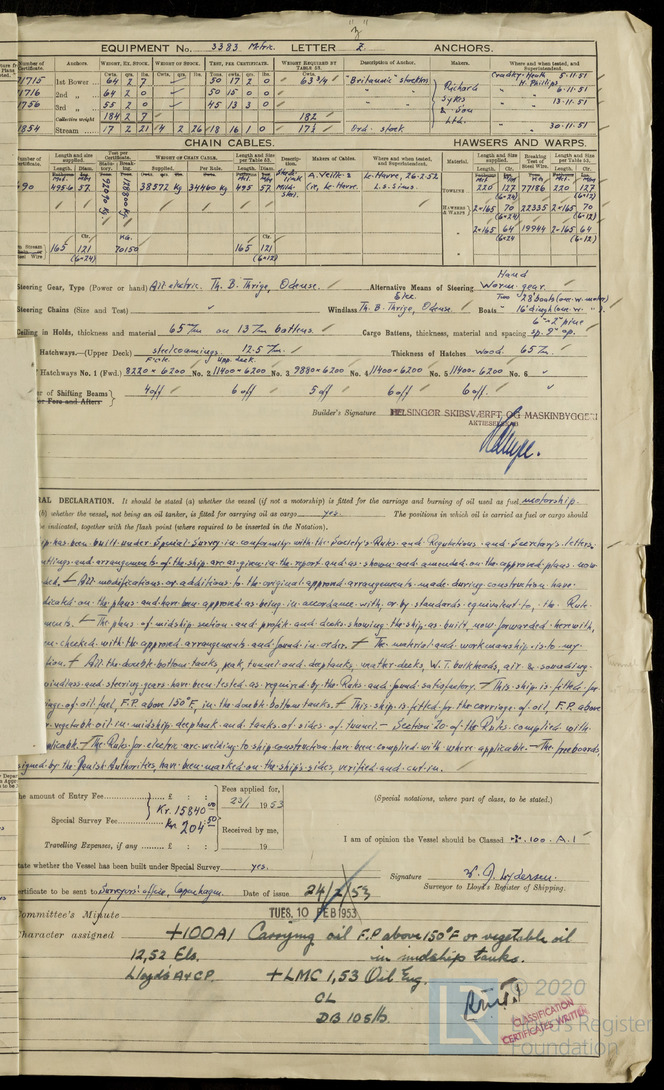 "Z"
EQUIPMENT No. 3383 Metric. LETTER Z. ANCHORS.
Number of Certificate. Anchors. WEIGHT, EX. STOCK. WEIGHT OF STOCK. TEST, PER CERTIFICATE. WEIGHT REQUIRED BY TABLE 53. Description of Anchor. Makers. Where and when tested, and Superintendent.
Cwts. qrs. lbs. Cwt. qrs. lbs. Tons. cwts. qrs. lbs. Cwts.
1715 1st Bower 64 2 7 50 17 2 0 63 3/4 "Britannic" stockless Richard Sykes & Son Ltd. Cradley Heath H. Phillips 5-11-51
1716 2nd " 64 2 0 50 15 0 0 " 6-11-51
1756 3rd " 55 2 0 45 13 3 0 " 13-11-51
Collective weight 184 2 7 182
1854 Stream 17 2 21 4 2 26 18 16 1 0 17 1/2 Ord. stock " 30-11-51
CHAIN CABLES. HAWSERS AND WARPS.
Number of Certificate. Length and size supplied. Test per Certificate. WEIGHT OF CHAIN CABLE. Length and Size per Table 53. Description. Makers of Cables. Where and when tested, and Superintendent. Material. Length and Size supplied. Breaking Test of Steel Wire. Length and Size per Table 53.
Length. Diam. Statutory. Breaking. Supplied. Per Rule. Length. Diam. Length. Cir. Length. Cir.
90 495.6 57. 92090 Kg 128800 Kg 38572 Kg 34460 Kg 495 57 Stud link Mild steel. A. Veille & Cie, Le Havre. Le Havre, 26-2-52 L.S. Sims. TOWLINE 220 127 (6×24) 77186 220 127 (6×12)
HAWSERS & WARPS 2×165 70 (6×24) 22335 2×165 70 (6×12)
Stream Steel Wire 165 Cir. 121 (6×24) KG. 70150 165 Cir. 121 (6×12) " 2×165 64 (6×24) 19944 2×165 64 (6×12)
Steering Gear, Type (Power or hand) All electric. Th. B. Thrige, Odense. Alternative Means of Steering Hand Worm gear.
Steering Chains (Size and Test) " Windlass Elec. Th. B. Thrige, Odense. Boats Two 28' boats (one w. motor) " 16' dinghy (one w. ").
Ceiling in Holds, thickness and material 65 m/m on 13 m/m battens. Cargo Battens, thickness, material and spacing 6"-2" pine sp. 9" op.
Hatchways.—(Upper Deck) steel coamings 12.5 m/m. Thickness of Hatches Wood. 65 m/m.
Fcsle. Upp. deck.
Hatchways No. 1 (Fwd.) 8220 × 6200 No. 2 11400 × 6200 No. 3 9880 × 6200 No. 4 11400 × 6200 No. 5 11400 × 6200 No. 6 "
er of Shifting Beams 4 off 6 off 5 off 6 off 6 off. "
or Fore and Afters
Builder's Signature HELSINGØR SKIBSVÆRFT OG MASKINBYGGERI
AKTIESELSKAB
RAL DECLARATION. It should be stated (a) whether the vessel (if not a motorship) is fitted for the carriage and burning of oil used as fuel motorship.
(b) whether the vessel, not being an oil tanker, is fitted for carrying oil as cargo yes. The positions in which oil is carried as fuel or cargo should
be indicated, together with the flash point (where required to be inserted in the Notation).
ip has been built under Special Survey in conformity with the Society's Rules and Regulations and Secretary's letters.
ntlings and arrangements of the ship are as given in the report and as shown and amended on the approved plans now
ded. All modifications or additions to the original approved arrangements made during construction have
dicated on the plans and have been approved as being in accordance with, or by standards equivalent to, the Rule
ments. The plans of midship section and profile and decks showing the ship as built now forwarded herewith,
en checked with the approved arrangements and found in order. The material and workmanship is to my
tion. All the double bottom tanks, peak, tunnel and deeptanks, weather decks, W.T. bulkheads, air & sounding
windlass and steering gears have been tested as required by the Rules and found satisfactory. This ship is fitted for
iage of oil fuel, F.P. above 150°F, in the double bottom tanks. This ship is fitted for the carriage of oil, F.P. above
or vegetable oil in midship deeptank and tanks at sides of tunnel. Section 20 of the Rules complied with
plicable. The Rules for electric arc welding to ship construction have been complied with where applicable. The freeboards
signed by the Danish Authorities, have been marked on the ship's sides, verified and cut in.
he amount of Entry Fee £ : : Kr. 15840.00 Fees applied for, 23/1 1953 (Special notations, where part of class, to be stated.)
Special Survey Fee Kr. 204.50
Received by me,
Travelling Expenses, if any £ : : 19 I am of opinion the Vessel should be Classed ✠ 100 A.1
tate whether the Vessel has been built under Special Survey yes.
Signature
Surveyor to Lloyd's Register of Shipping.
ertificate to be sent to Surveyors' office, Copenhagen Date of issue 24/2/53
Committee's Minute TUES. 10 FEB 1953
Character assigned +100A1 Carrying oil F.P above 150°F or vegetable oil
12,52 Els. in midship tanks.
Lloyd's A & CP. +LMC 1,53 Oil Eng.
CL
DB 105 lb.
CLASSIFICATION
CERTIFICATES WRITTEN
© 2020
LR Lloyd's Register
Foundation